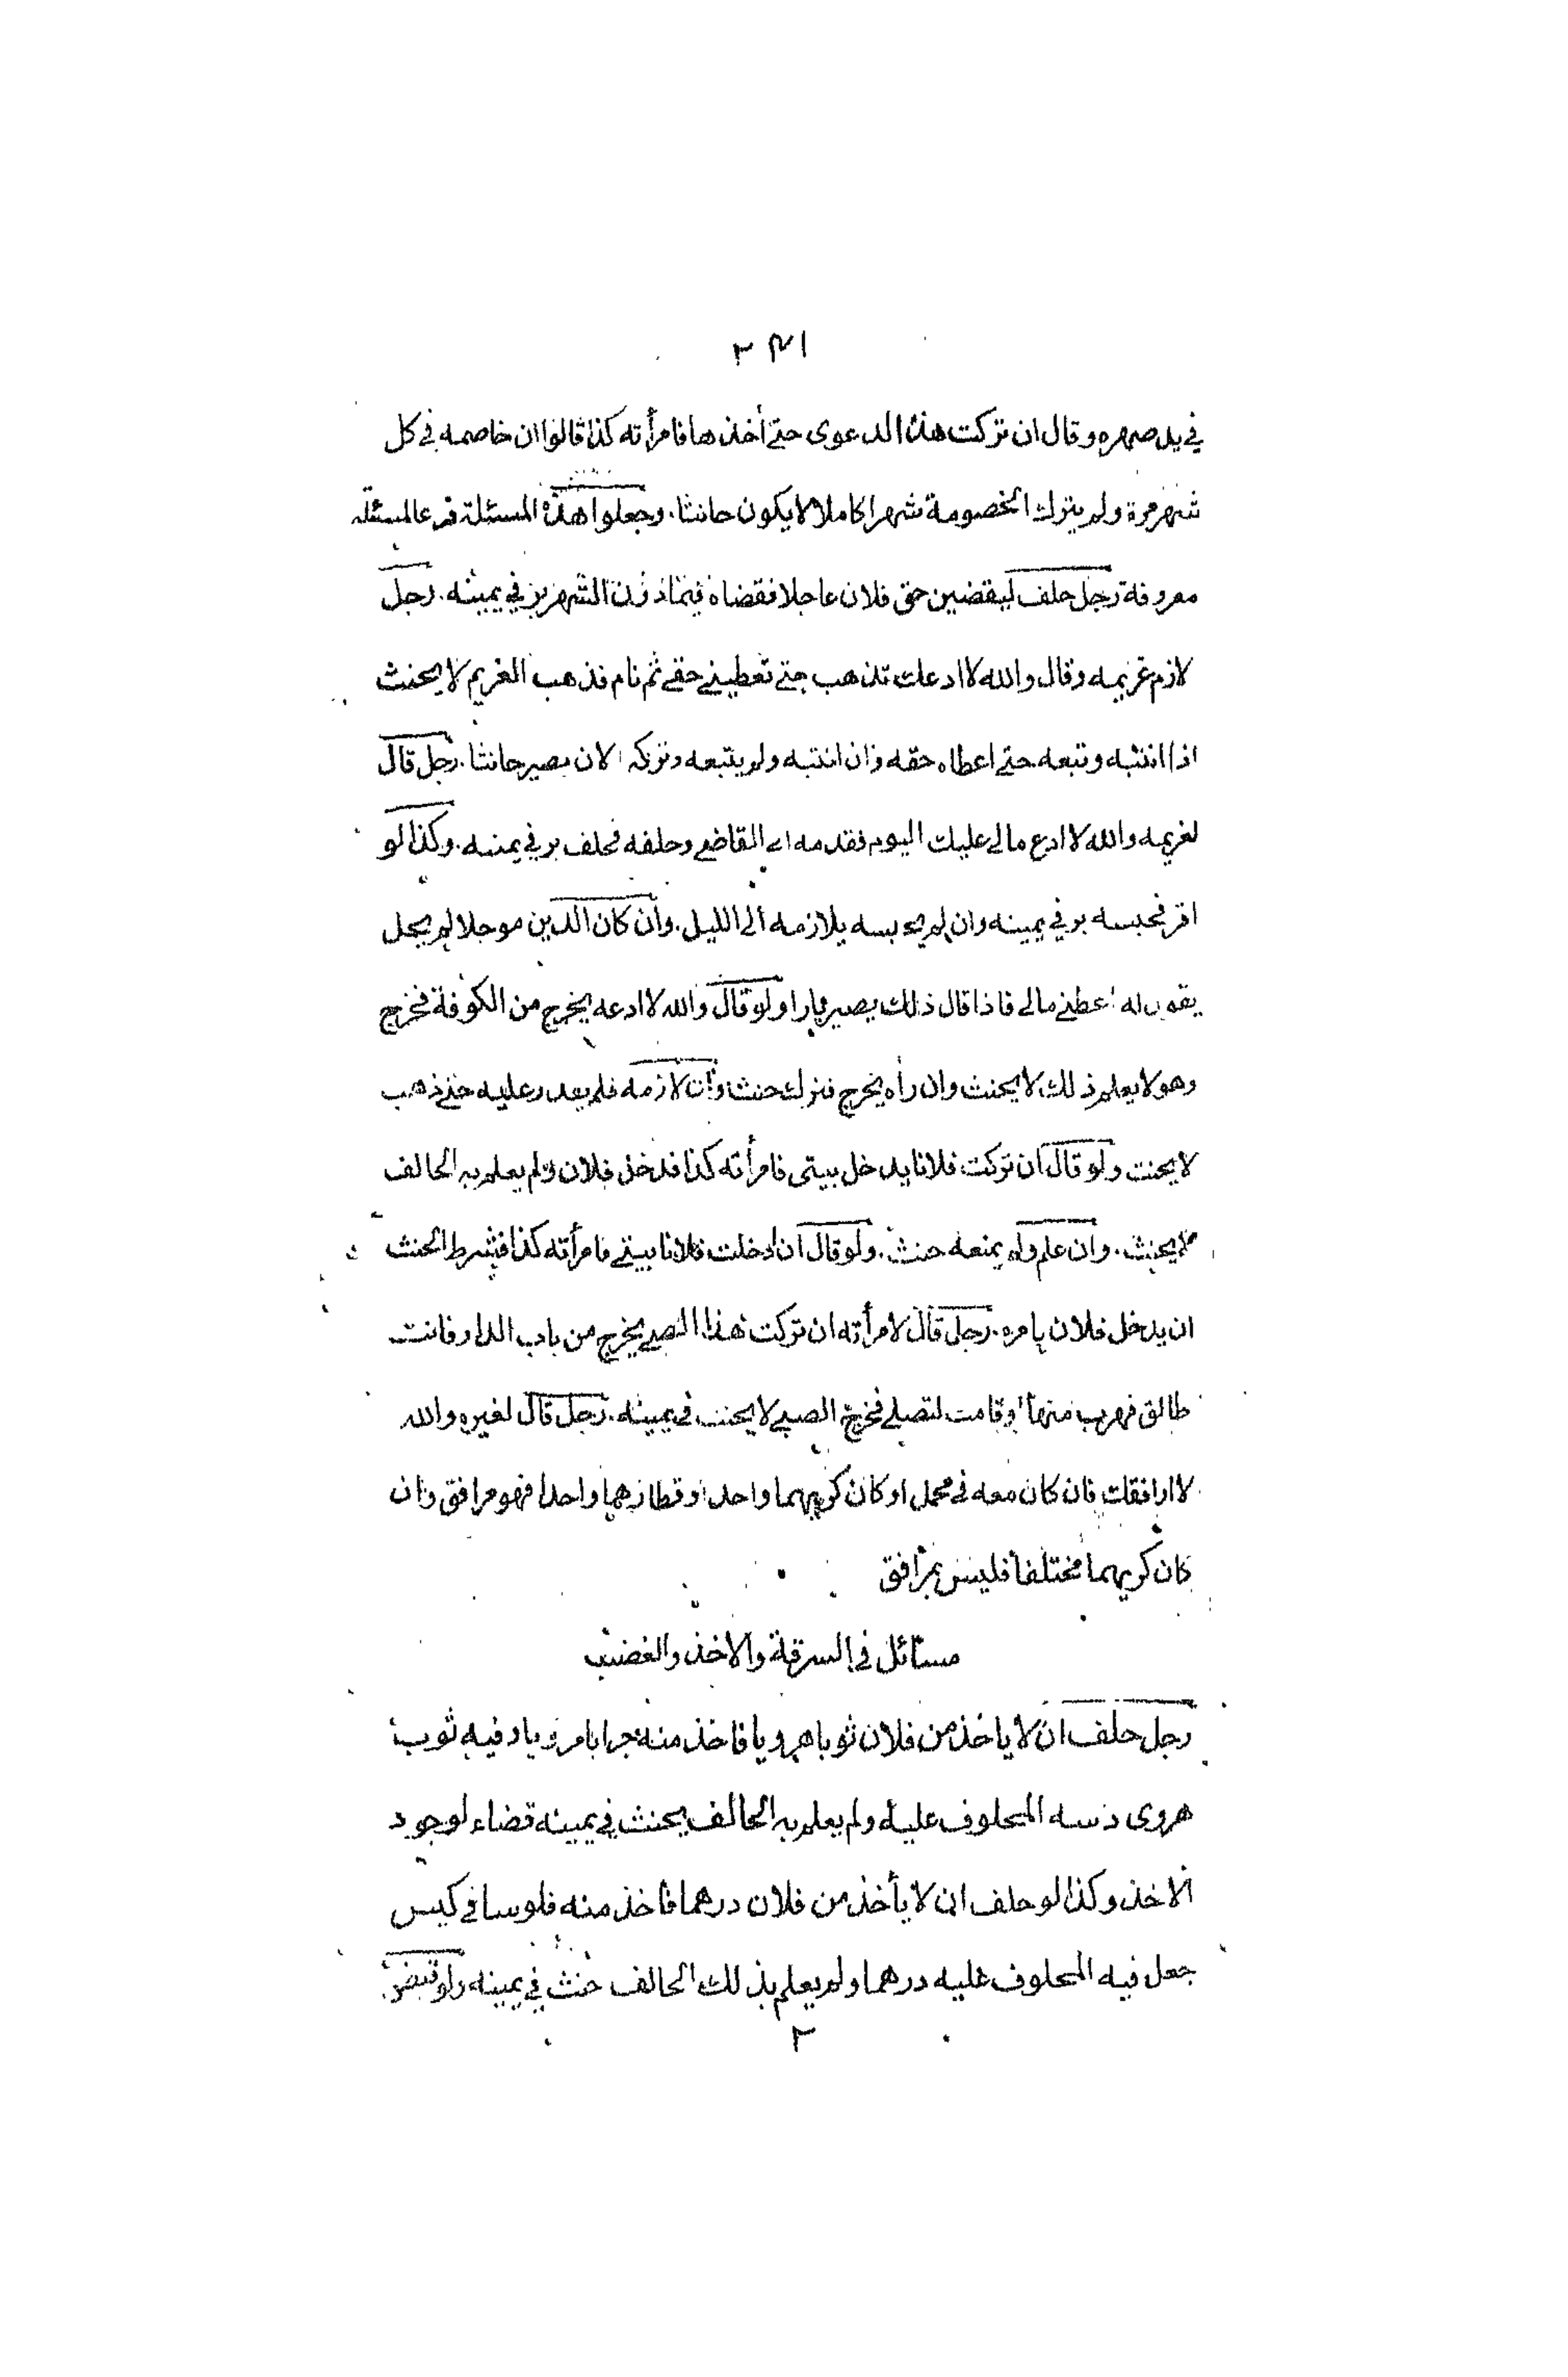 ٢٣١
في يد صهره وقال ان تركت هذا الدعوى حتى أخذها فامرأته كذا قالوا ان خاصمه في كل
شهر مرة ولم يترك الخصومة شهرا كاملا لا يكون حانثا. وجعلوا هذه المسئلة فرعا لمسئلة
معروفة رجل حلف ليقضين حق فلان عاجلا فقضاه فيما دون الشهر بر في يمينه. رجل
لازم غريمه وقال والله لا ادعك تذهب حتى تعطيني حقي ثم نام فذهب الغريم لا يحنث
اذا انتبه وتبعه حتى اعطاه حقه وان انتبه ولم يتبعه وتركه الان يصير حانثا. رجل قال
لغريمه والله لا ادع مالي عليك اليوم فقدمه الى القاضي وحلفه فحلف بر في يمينه. وكذا لو
اقر فحبسه بر في يمينه وان لم يحبسه يلازمه الى الليل. وان كان الدين موجلا لم يحل
يقول له اعطني مالي فاذا قال ذلك يصير بارا ولو قال والله لا ادعه يخرج من الكوفة فخرج
وهو لا يعلم ذلك لا يحنث وان رأه يخرج فترك حنث وان لازمه فلم يقدر عليه حتى ذهب
لا يحنث ولو قال ان تركت فلانا يدخل بيتى فامرأته كذا فدخل فلان ولم يعلم به الحالف
لا يحنث. وان علم ولم يمنعه حنث. ولو قال ان ادخلت فلانا بيتي فامرأته كذا فشرط الحنث
ان يدخل فلان بامره. رجل قال لامرأته ان تركت هذا الصبي يخرج من باب الدار فانت
طالق فهرب منها او قامت لتصلي فخرج الصبي لا يحنث في يمينه. رجل قال لغيره والله
لا ارافقك فان كان معه في محمل او كان كريهما واحدا وقطارهما واحدا فهو مرافق وان
كان كريهما مختلفا فليس بمرافق
مسائل في السرقة والاخذ والغضب
رجل حلف ان لا ياخذ من فلان ثوبا هرويا فاخذ منه جرابا مرويا د فيه ثوب
هروى دسه المحلوف عليه ولم يعلم به الحالف يحنث في يمينه قضاء لوجود
الاخذ وكذا لو حلف ان لا يأخذ من فلان درهما فاخذ منه فلوسا في كيس
جعل فيه المحلوف عليه درهما ولم يعلم بذلك الحالف حنث في يمينه ولو قبض
٢